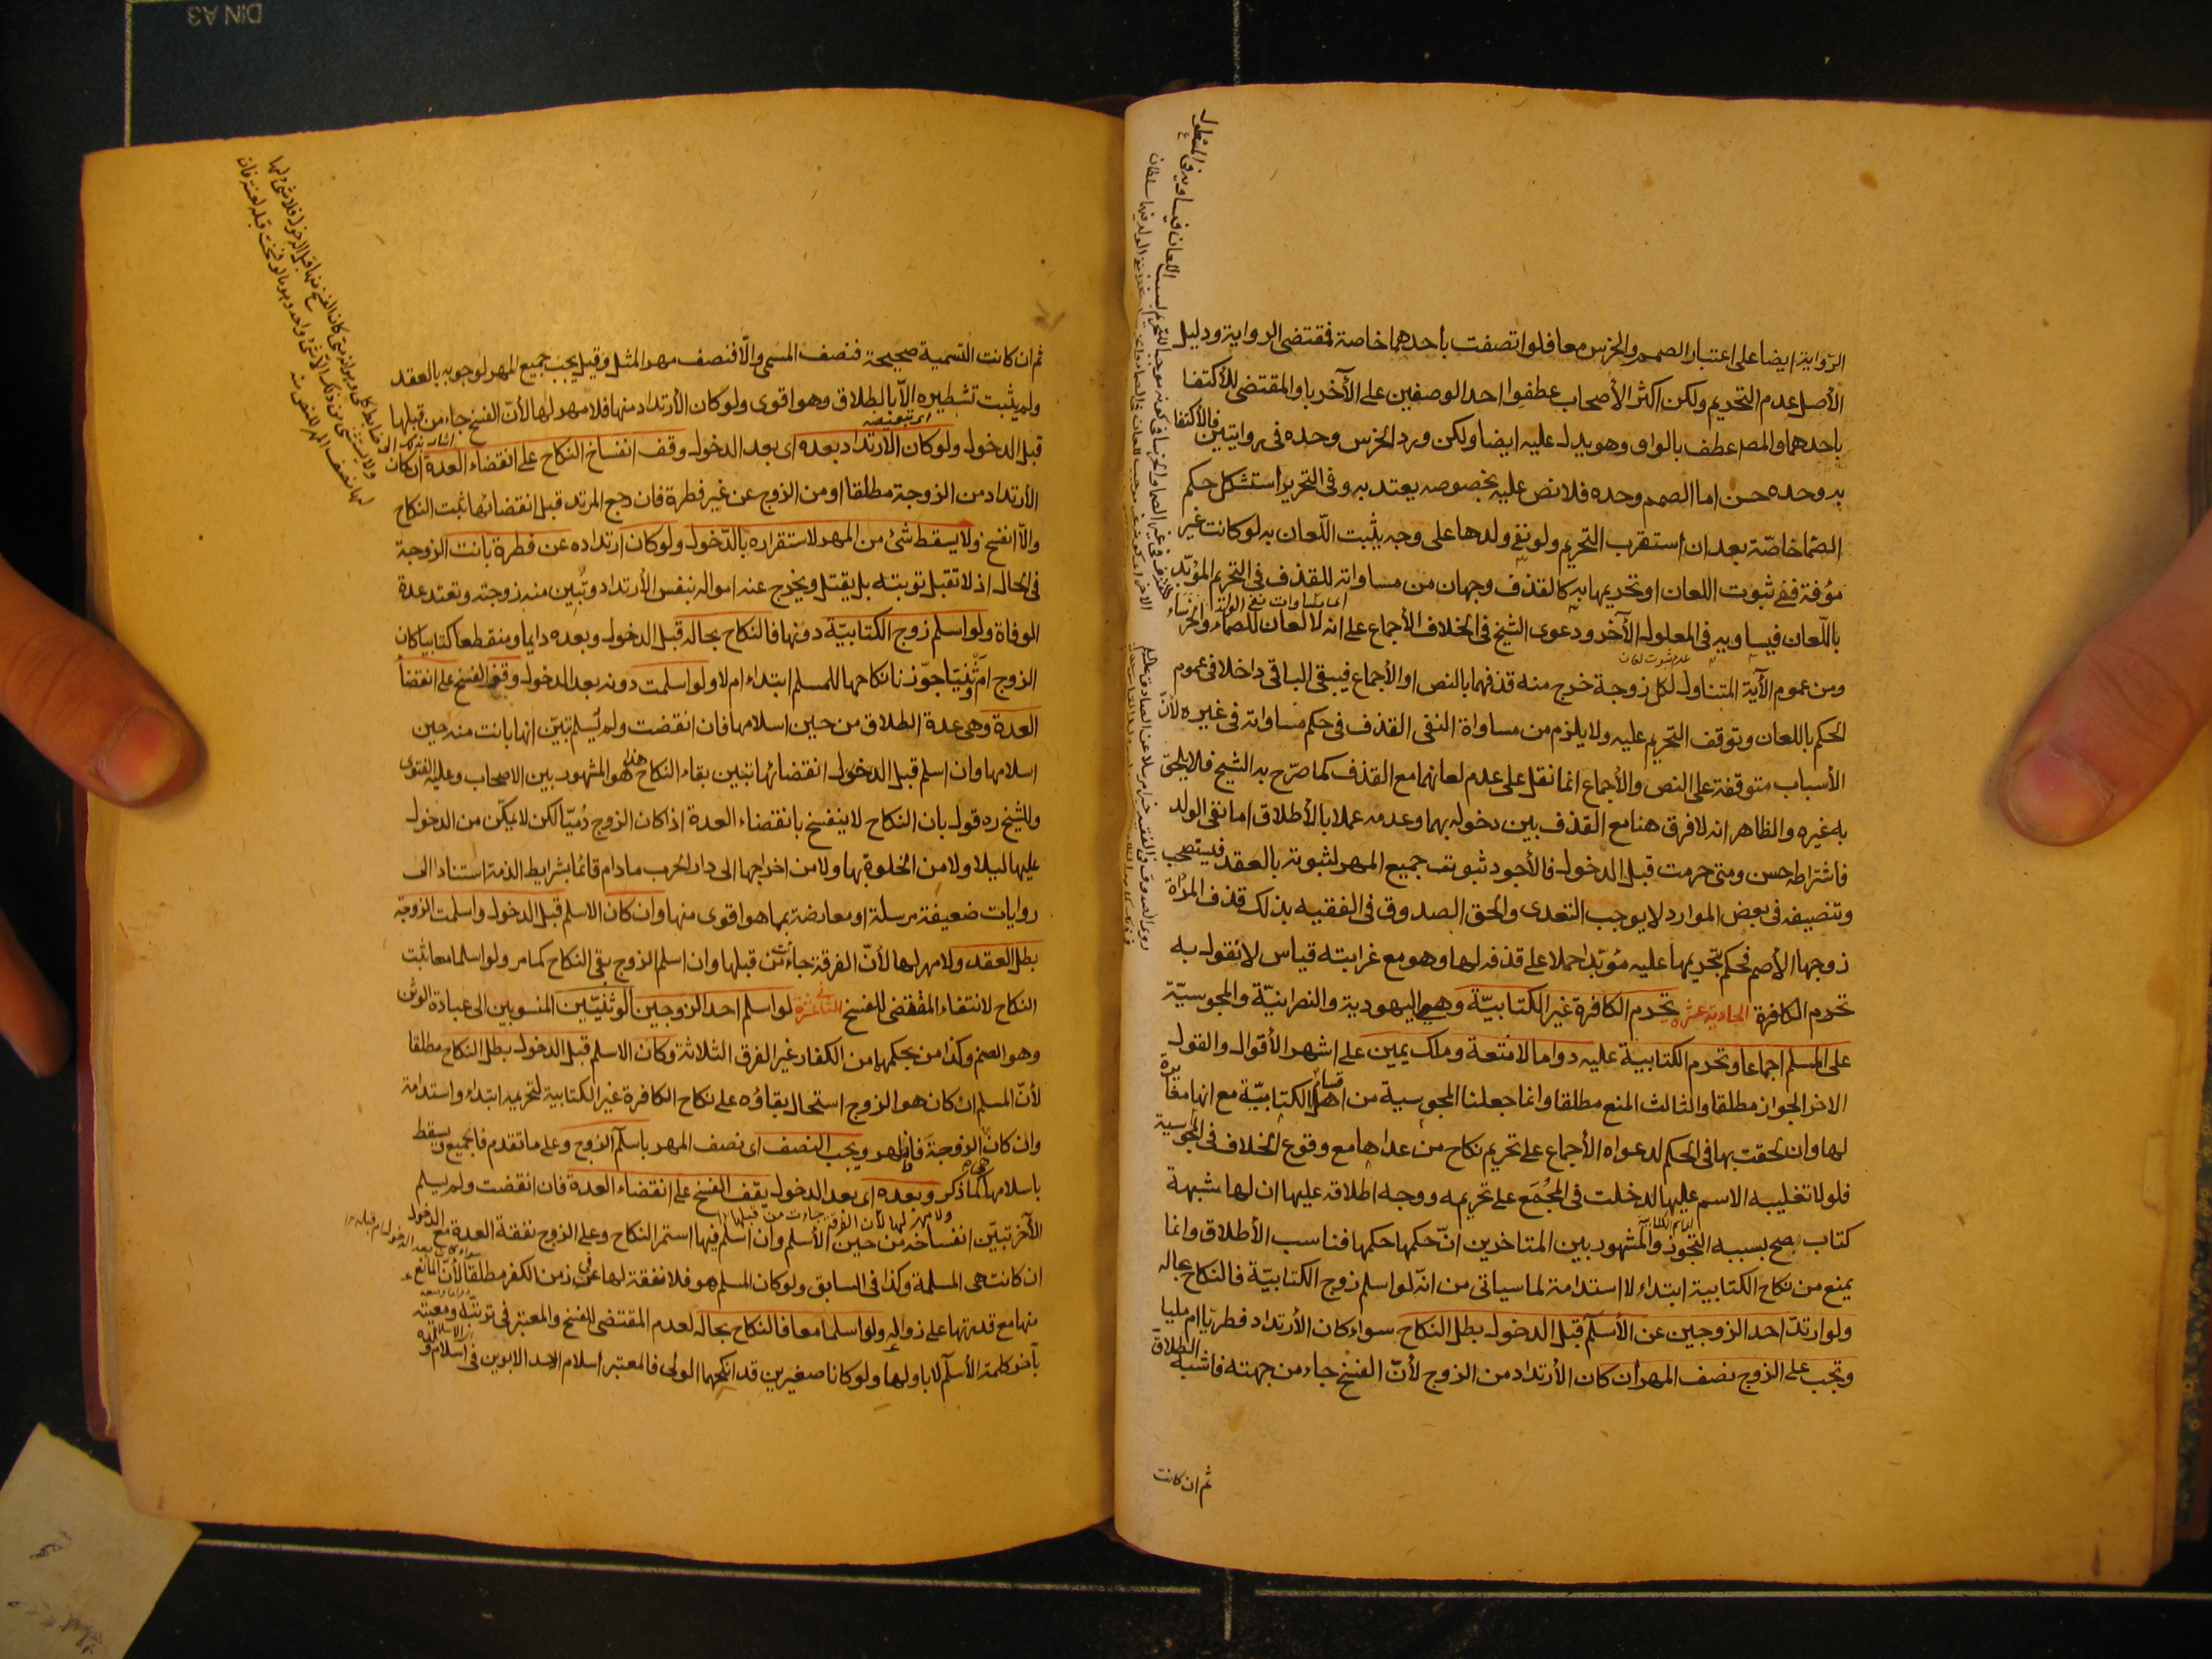 الرواية ايضا على اعتبار الصمم والخرس معا فلو اتصفت باحدهما خاصة فمقتضى الرواية ودليل
الأصل عدم التحريم ولكن اكثر الأصحاب عطفوا احد الوصفين على الآخر باو المقتضى للأكتفا
باحدهما والمصـ عطف بالواو وهو يدل عليه ايضا ولكن ورد الخرس وحده فى روايتين فالأكتفا
به وحده حسن اما الصمم وحده فلا نص عليه بخصوصه يعتد به وفى التحرير استشكل حكم
الصمّا خاصّة بعد ان استقرب التحريم ولو نفى ولدها على وجه يثبت اللّعان به لو كانت غير
مؤفة ففى ثبوت اللعان او تحريمها به كالقذف وجهان من مساواته للقذف فى التحريم المؤبّد
باللّعان فيساويه فى المعلول الآخر ودعوى الشيخ فى الخلاف الأجماع على انه لا لعان للصمّاء والخرساء
ومن عموم الآية المتناول لكل زوجة خرج منه قذفهما بالنص او الأجماع فيبقى الباقى داخلا فى عموم
الحكم باللعان وتوقف التحريم عليه ولا يلزم من مساواة النفى القذف فى حكم مساواته فى غيره لأنّ
الأسباب متوقّفة على النص والأجماع انما نقل على عدم لعانهما مع القذف كما صرّح به الشيخ فلا يلحق
به غيره والظاهر انه لا فرق هنا مع القذف بين دخوله بهما وعدمه عملا بالأطلاق اما نفى الولد
فاشتراطه حسن ومتى حرمت قبل الدخول فالأجود ثبوت جميع المهر لثبوته بالعقد فيستصحب
وتنصيفه فى بعض الموارد لا يوجب التعدى والحق الصدوق فى الفقيه بذلك قذف المرأة
زوجها الأصم فحكم بتحريمها عليه مؤبّدا حملا على قذفه لها وهو مع غرابته قياس لا نقول به
تحرم الكافرة الحادية عشرة تحرم الكافرة غير الكتابيّة وهى اليهودية والنصرانيّة والمجوسيّة
على المسلم اجماعا وتحرم الكتابية عليه دواما لا متعة وملك يمين على اشهر الأقوال والقول
الاخر الجواز مطلقا والثالث المنع مطلقا وانما جعلنا المجوسية من اقسام الكتابيّة مع انها مغايرة
لها وان لحقت بها فى الحكم لدعواه الأجماع على تحريم نكاح من عداها مع وقوع الخلاف فى المجوسية
فلولا تغليبه الاسم عليها لدخلت فى المجْمَع على تحريمه ووجه اطلاقه عليها ان لها شبهة
كتاب صح بسببه التجوز والمشهور بين المتاخرين انّ حكمها حكمها فناسب الأطلاق وانما
يمنع من نكاح الكتابية ابتداء لا استدامة لما سياتى من انّه لو اسلم زوج الكتابيّة فالنكاح بحاله
ولو ارتدّ احد الزوجين عن الأسلام قبل الدخول بطل النكاح سواء كان الأرتداد فطريّا ام مليا
وتجب على الزوج نصف المهر ان كان الأرتداد من الزوج لأنّ الفسخ جاء من جهته فاشبه الطلاق
ثم ان كانت
ثم ان كانت التسمية صحيحة فنصف المسمى والّا فنصف مهر المثل وقيل يجب جميع المهر لوجوبه بالعقد
ولم يثبت تشطيره الّا بالطلاق وهو اقوى ولو كان الأرتداد منها فلا مهر لها لأنّ الفسخ جاء من قبلها
قبل الدخول ولو كان الأرتداد بعده اى بعد الدخول وقف انفساخ النكاح على انقضاء العدة ان كان
الأرتداد من الزوجة مطلقا او من الزوج عن غير فطرة فان رجع المرتد قبل انقضائها ثبت النكاح
والّا انفسخ ولا يسقط شئ من المهر لاستقراره بالدّخول ولو كان ارتداده عن فطرة بانت الزوجة
فى الحال اذ لا تقبل توبته بل يقتل ويخرج عنه امواله بنفس الأرتداد وتبين منه زوجته وتعتد عدة
الوفاة ولو اسلم زوج الكتابيّة دونها فالنكاح بحاله قبل الدخول وبعده دايما ومنقطعا كتابيا كان
الزوج ام وثنيّا جوّزنا نكاحها للمسلم ابتداء ام لا ولو اسلمت دونه بعد الدخول وقف الفسخ على انقضأ
العدة وهى عدة الطلاق من حين اسلامها فان انقضت ولم يسلم تبيّن انها بانت منه حين
اسلامها وان اسلم قبل انقضائها تبين بقاء النكاح هذا هو المشهور بين الاصحاب وعليه الفتوى
وللشيخ ره قول بان النكاح لا ينفسخ بانقضاء العدة اذا كان الزوج ذميّا لكن لا يمكّن من الدخول
عليها ليلا ولا من الخلوة بها ولا من اخراجها الى دار الحرب ما دام قائما بشرايط الذمة استنادا الى
روايات ضعيفة مرسلة او معارضة بما هو اقوى منها وان كان الاسلام قبل الدخول واسلمت الزوجة
بطل العقد ولا مهر لها لأنّ الفرقة جاءت من قبلها وان اسلم الزوج بقى النكاح كما مر ولو اسلما معا ثبت
النكاح لانتفاء المقتضى للفسخ الثانية عشرة لو اسلم احد الزوجين الوثنيّين المنسوبين الى عبادة الوثن
وهو الصنم وكذا من بحكمهما من الكفار غير الفرق الثلاثة وكان الاسلام قبل الدخول بطل النكاح مطلقا
لأنّ المسلم ان كان هو الزوج استحال بقاؤه على نكاح الكافرة غير الكتابية لتحريمه ابتداء واستدامة
وان كان الزوجة فاظهر ويجب النصف اى نصف المهر باسلام الزوج وعلى ما تقدم فالجميع ويسقط
باسلامها لما ذكر وبعده اى بعد الدخول يقف الفسخ على انقضاء العدة فان انقضت ولم يسلم
الآخر تبيّن انفساخه من حين الأسلام وان اسلم فيها استمر النكاح وعلى الزوج نفقة العدة مع الدخول
ان كانت هى المسلمة وكذا فى السابق ولو كان المسلم هو فلا نفقة لها عن زمن الكفر مطلقا لأنّ المانع
منها مع قدرتها على زواله ولو اسلما معا فالنكاح بحاله لعدم المقتضى للفسخ والمعتبر فى ترتبه ومعيته
بآخر كلمة الأسلام لا باولها ولو كانا صغيرين قد انكحهما الولى فالمعتبر اسلام احد الابوين فى اسلام ولده